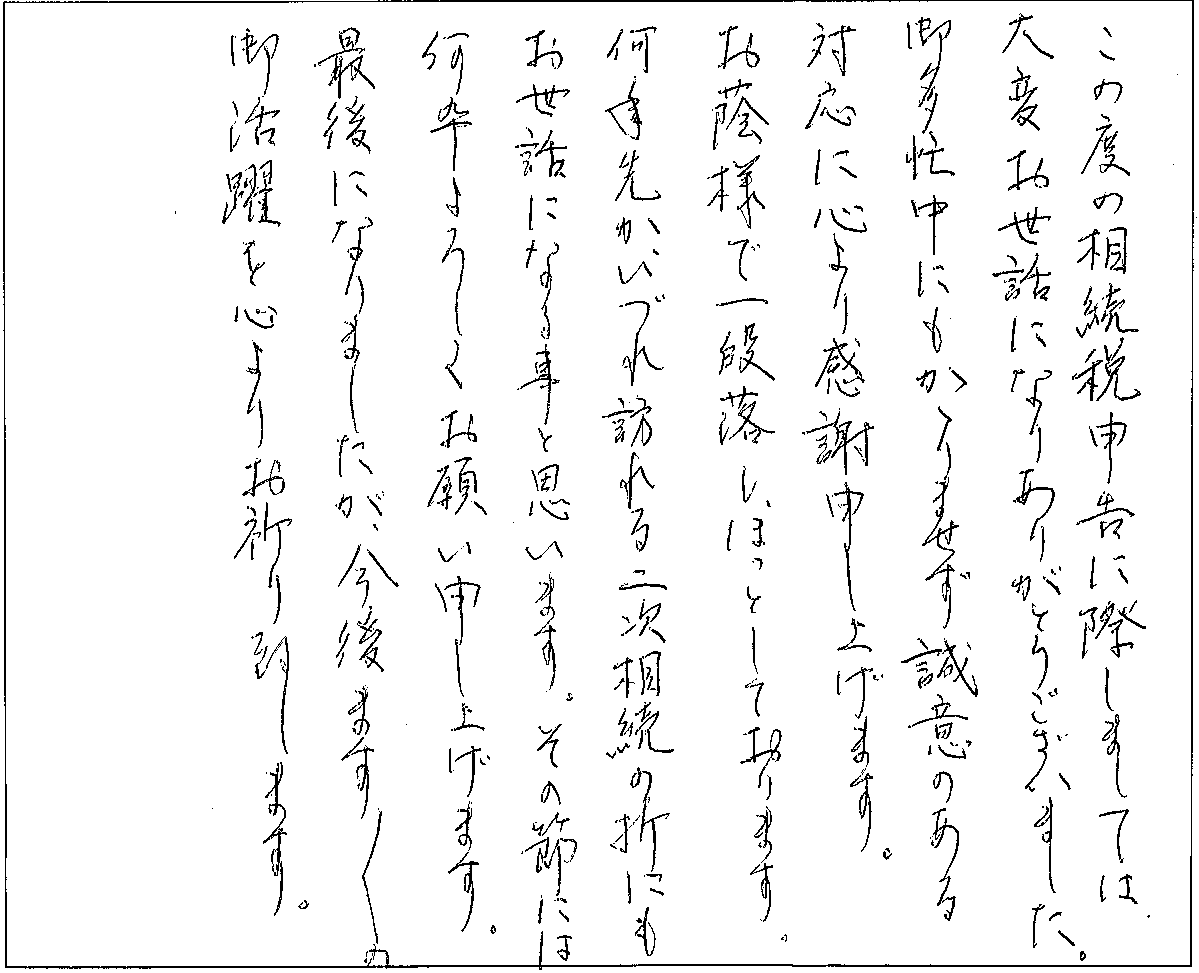 この度の相続税申告に際しましては、
大変お世話になりありがとうございました。
御多忙中にもかゝりませず誠意のある
対応に心より感謝申し上げます。
お蔭様で一段落し、ほっとしております。
何年先かいづれ訪れる二次相続の折にも
お世話になる事と思います。その節には
何卒よろしくお願い申し上げます。
最後になりましたが、今後ます〳〵の
御活躍を心よりお祈り致します。